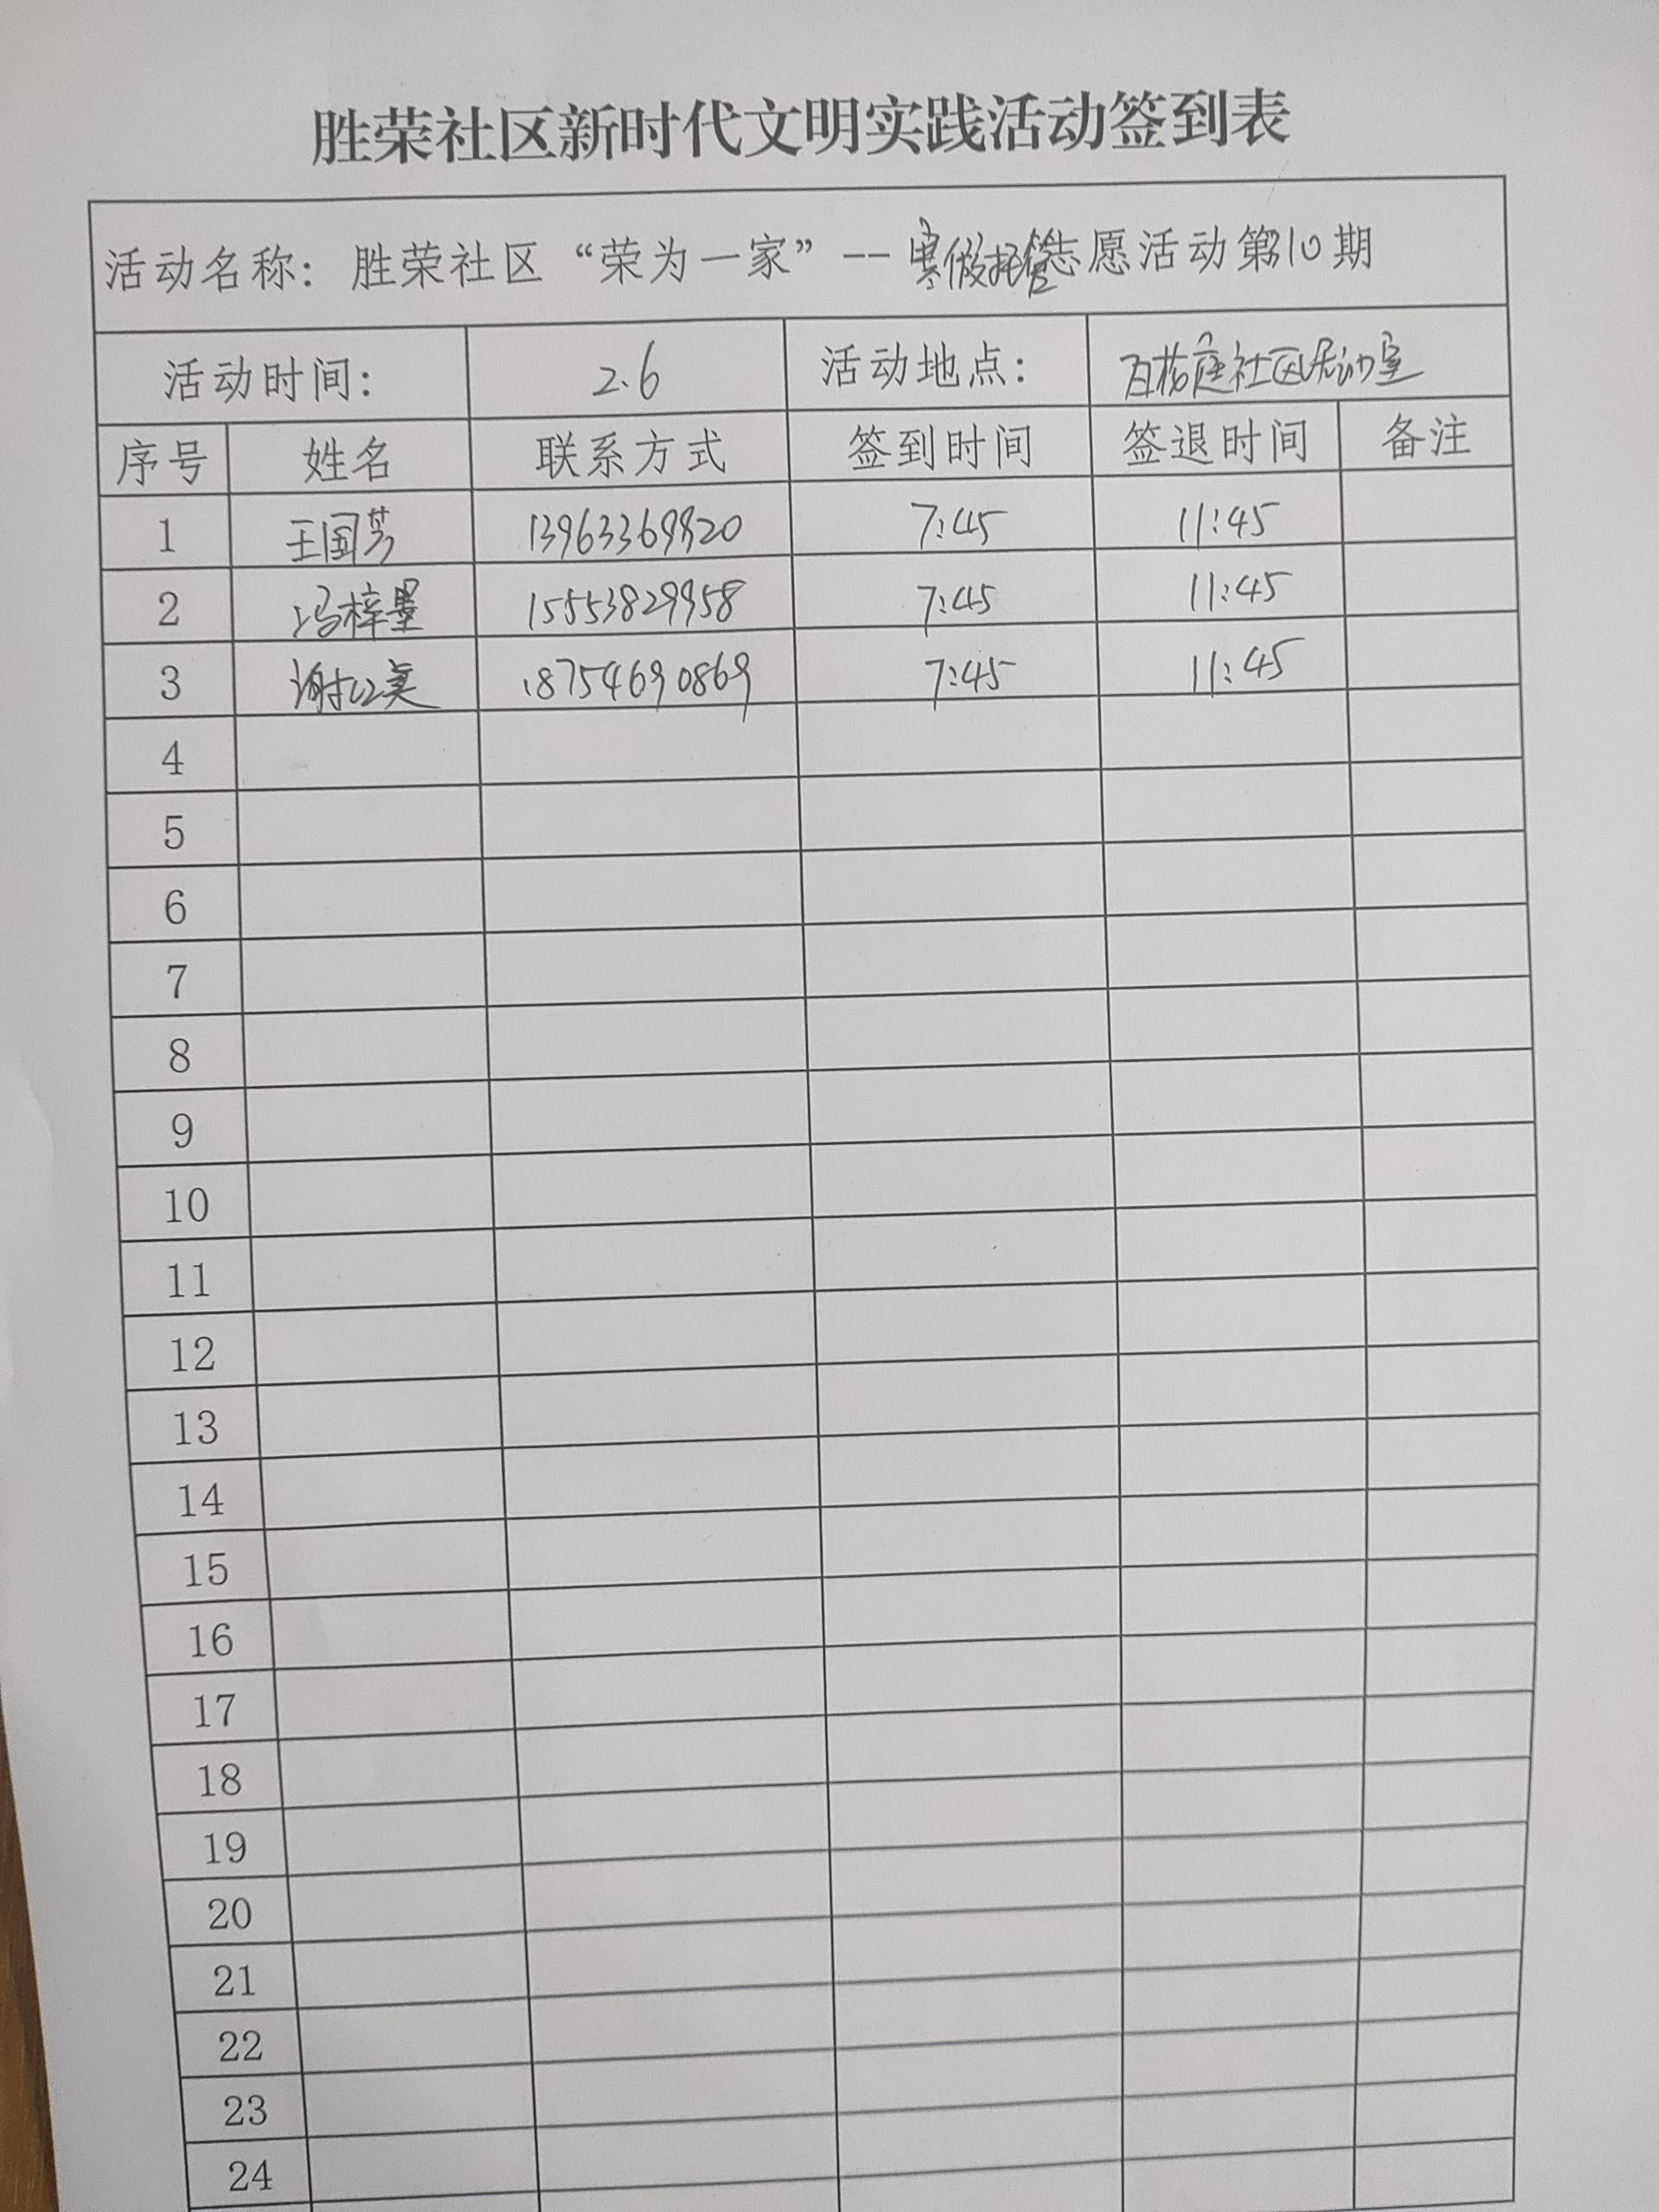 胜荣社区新时代文明实践活动签到表
活动名称：胜荣社区“荣为一家”--寒假托管志愿活动第10期
活动时间： 2.6 活动地点： 百花庭社区活动室
序号 姓名 联系方式 签到时间 签退时间 备注
1 王国芳 13963369920 7:45 11:45
2 冯梓墨 15553829958 7:45 11:45
3 谢红美 18754690869 7:45 11:45
4
5
6
7
8
9
10
11
12
13
14
15
16
17
18
19
20
21
22
23
24